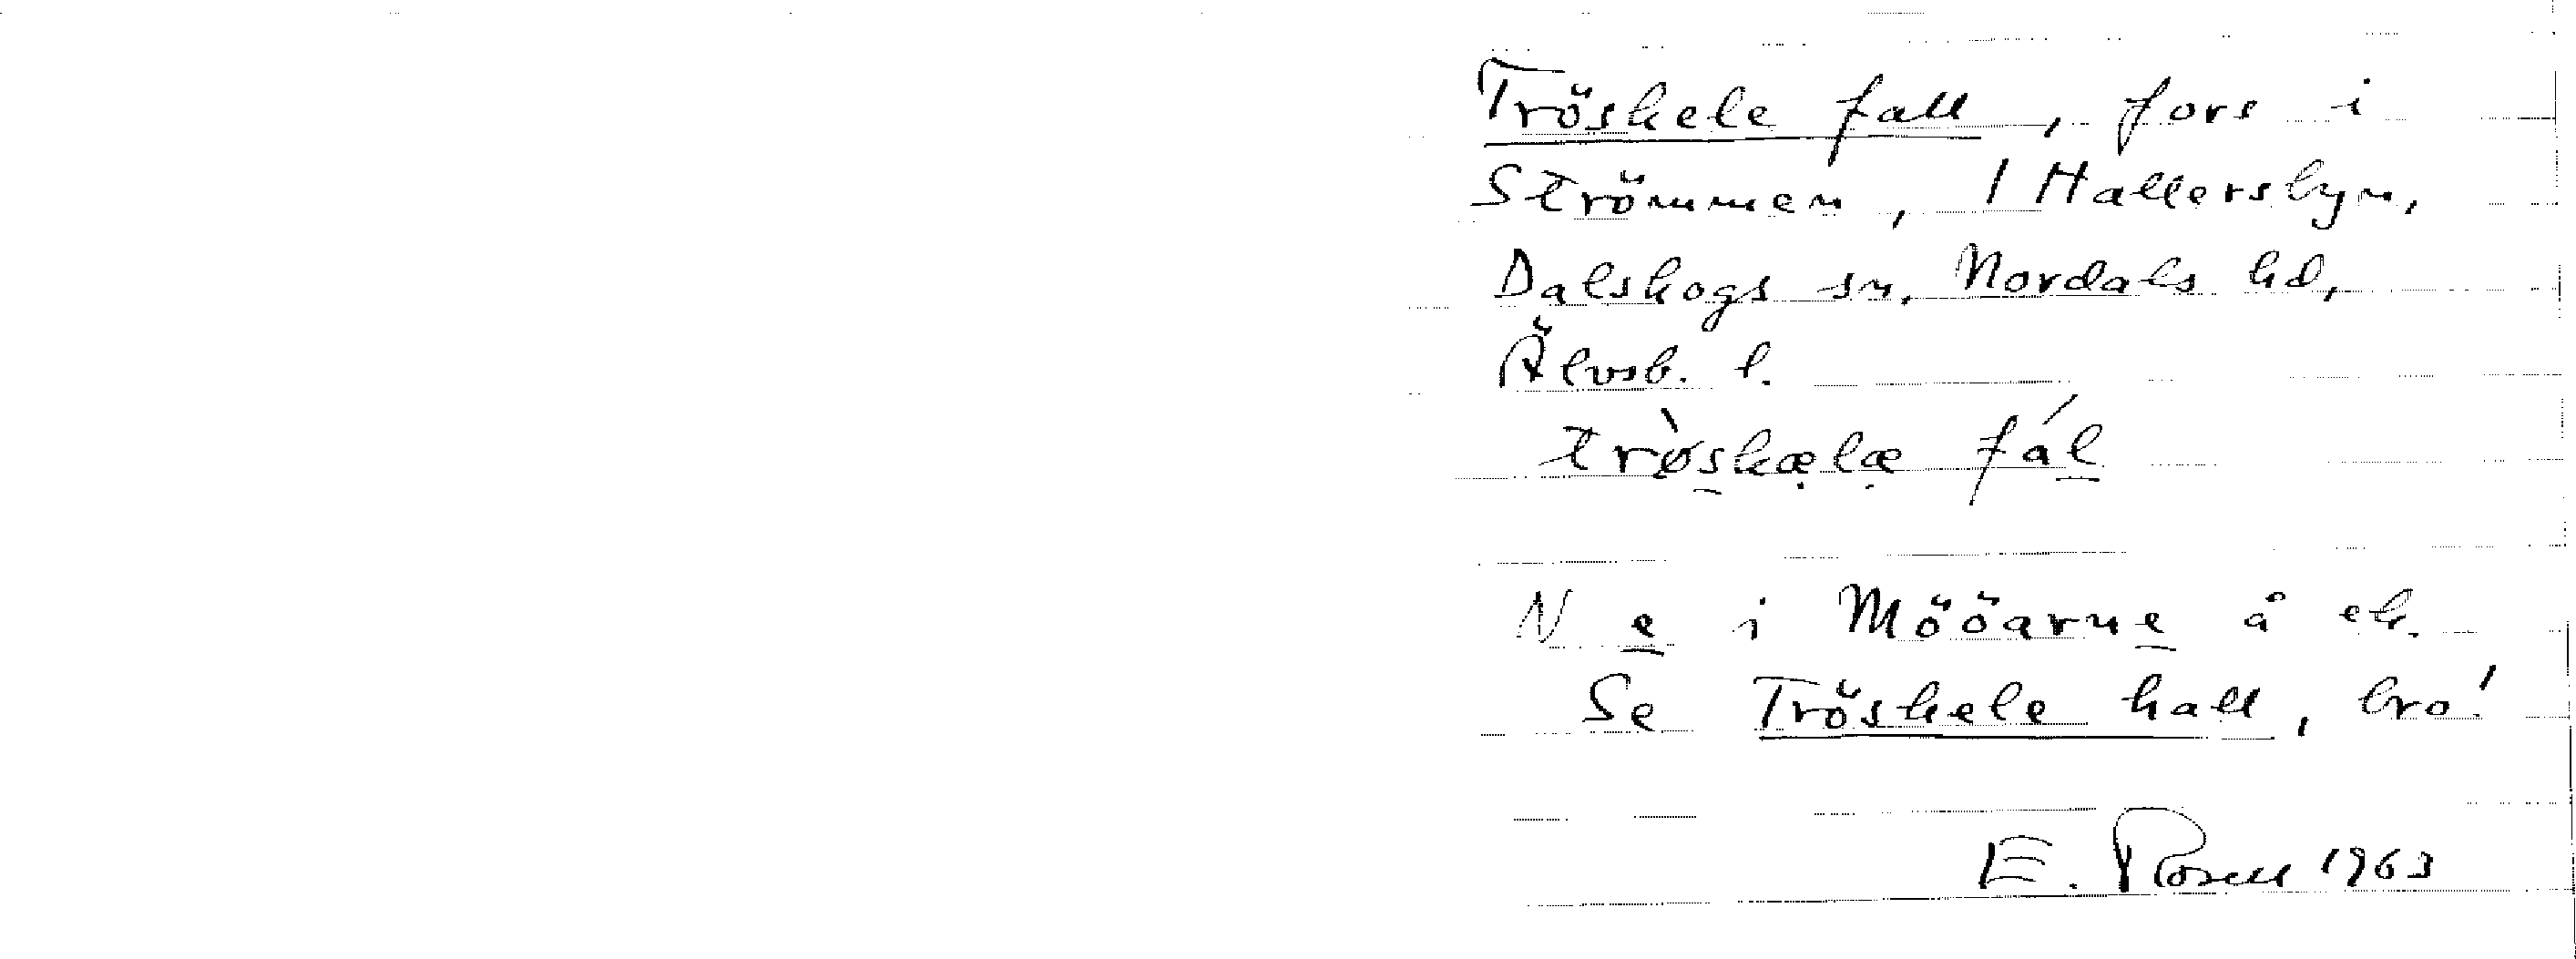 Tröskele fall, fors i
Strömmen, 1 Hallersbyn,
Dalskogs sn, Nordals hd,
Älvsb. l.
trø̀skælæ fál
N e i Mööarne å ek.
Se Tröskele hall, bro!
E. Rosell 1963